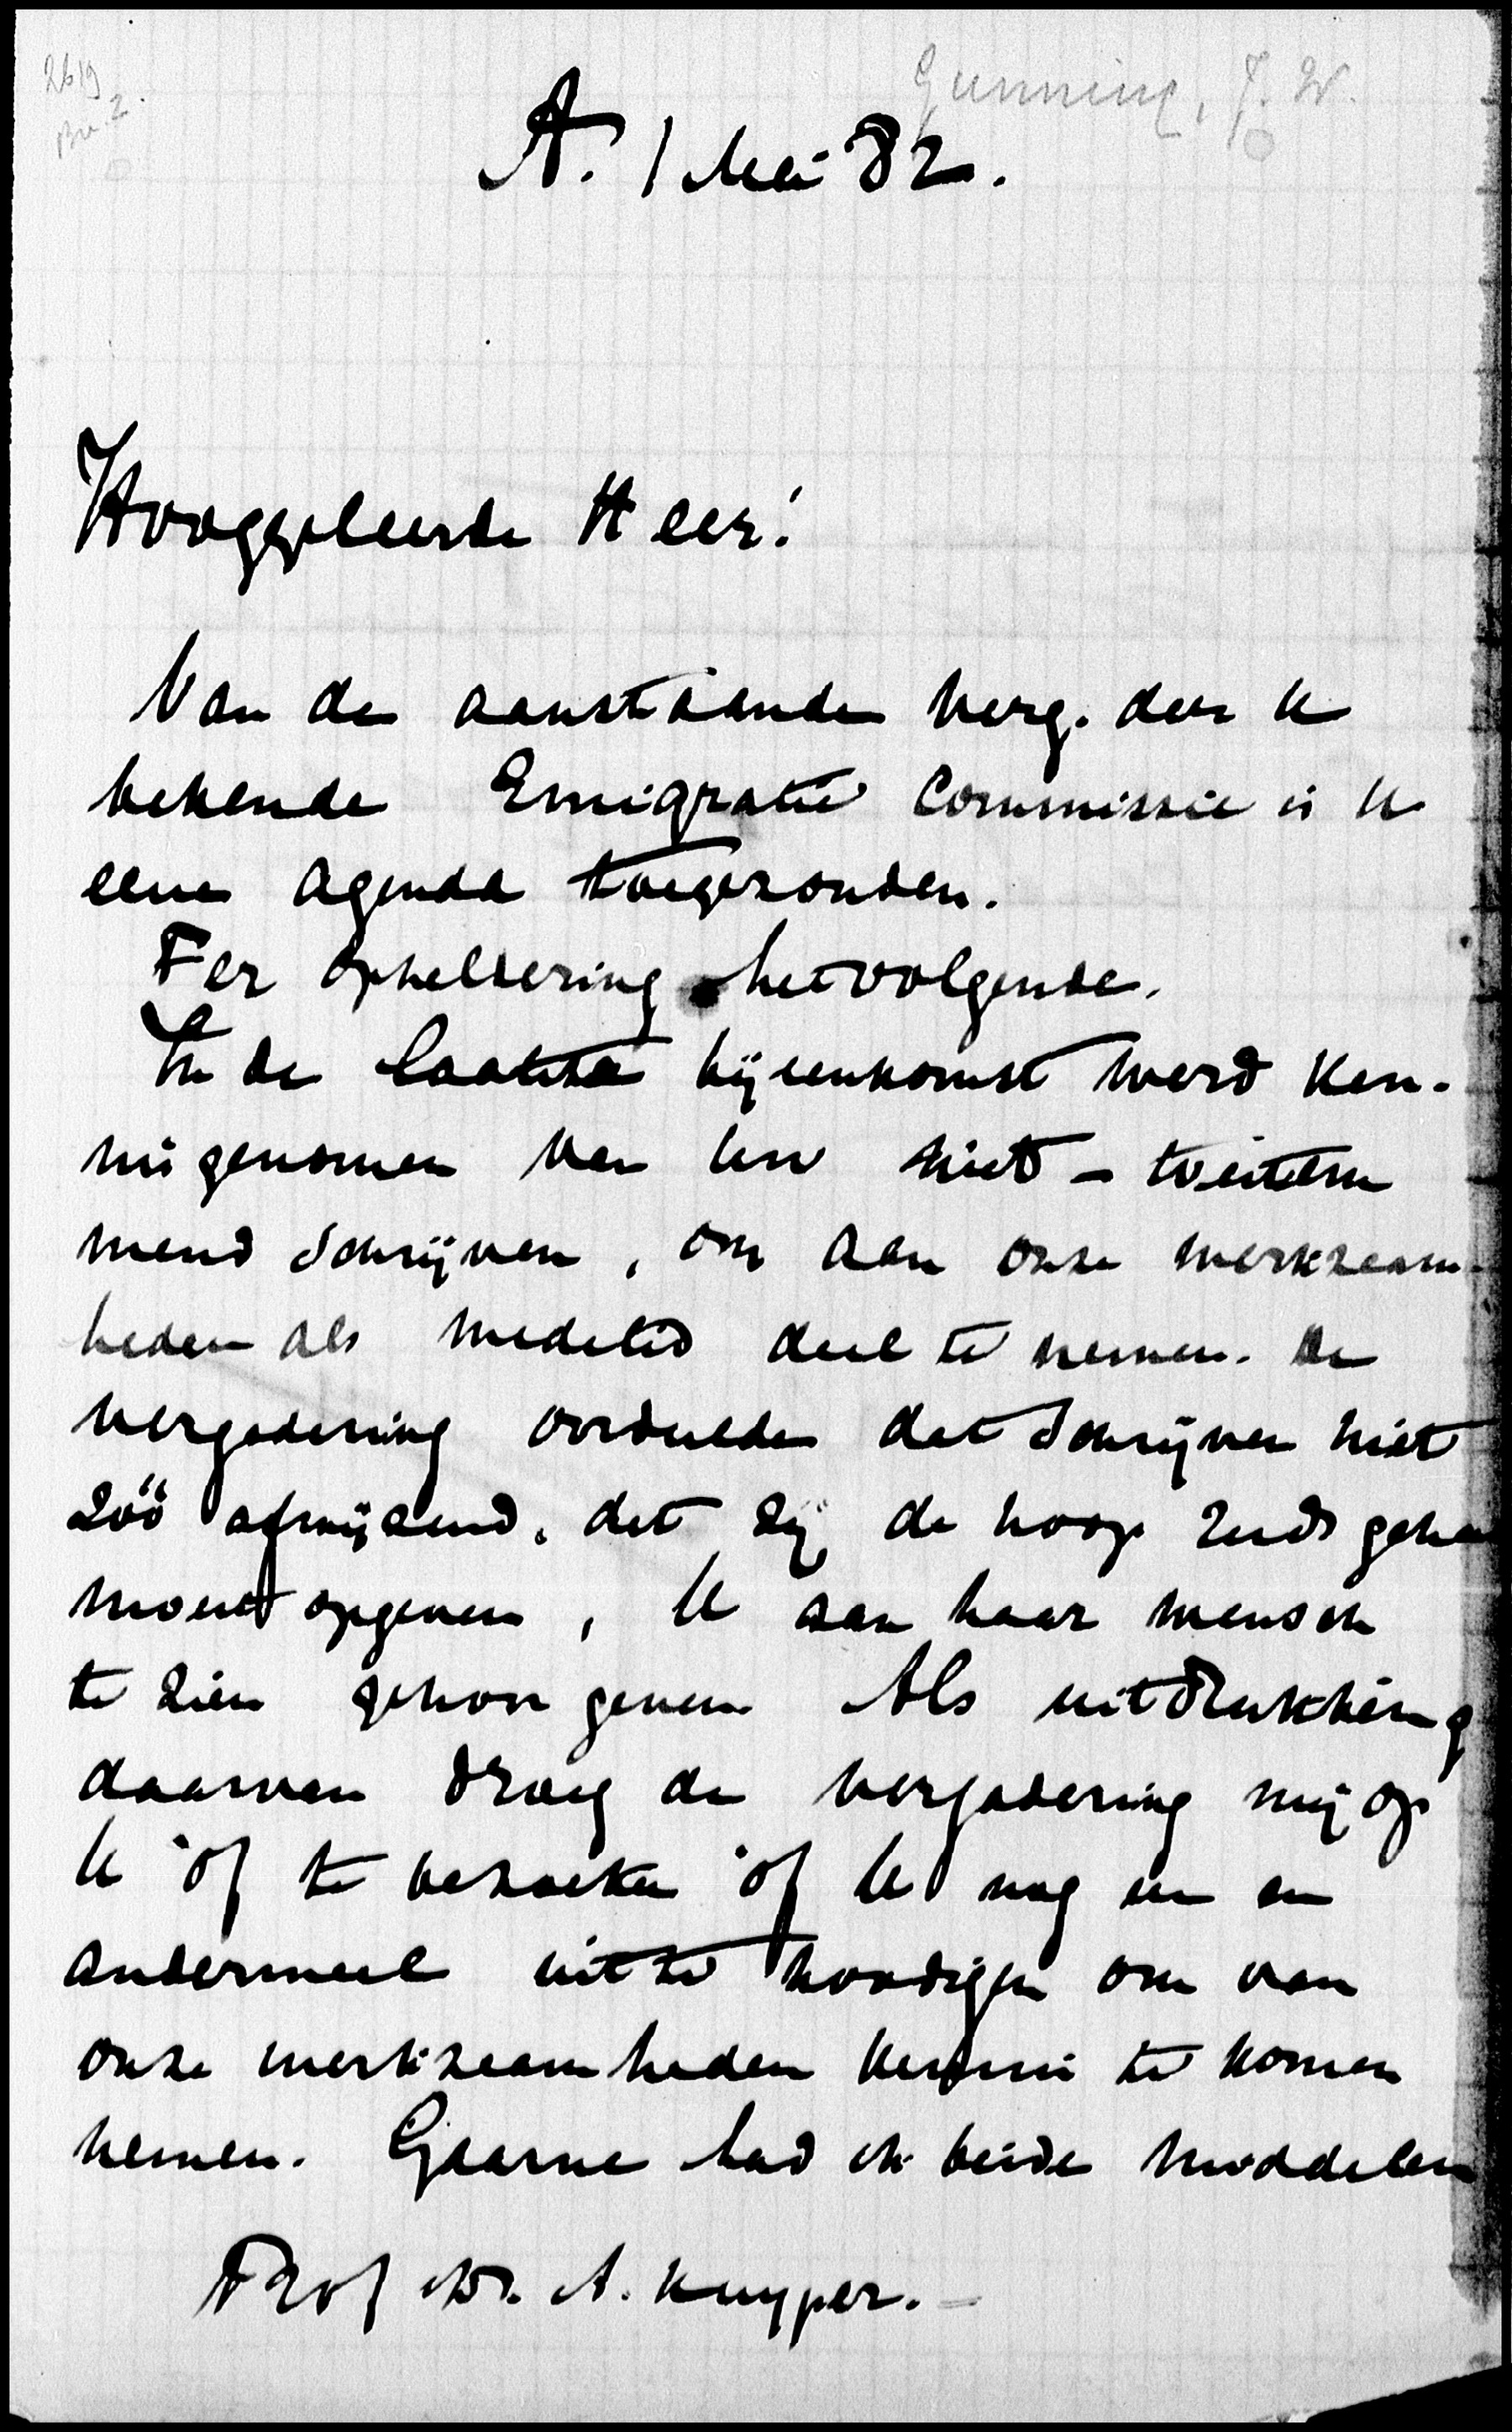 2619
Br. 2.
Gunning, J. W.
A. 1 Mei 82.
Hooggeleerde Heer!
Van de aanstaande verg. der U
bekende Emigratie Commissie is U
eene agenda toegezonden.
Ter opheldering het volgende.
In de laatste bijeenkomst werd ken-
nis genomen van Uw niet-toestem
mend schrijven, om aan onze werkzaam-
heden als medelid deel te nemen. De
vergadering oordeelde dat schrijven niet
zóó afwijzend, dat zij de hoop zud gehe
moest opgeven, U aan haar wensch
te zien gehoor geven. Als uitdrukking
daarvan droeg de vergadering mij op
U òf te bezoeken òf U nog een en
andermaal uit te noodigen om van
onze werkzaamheden kennis te komen
nemen. Gaarne had ik beide middelen
Prof Dr. A. Kuyper.